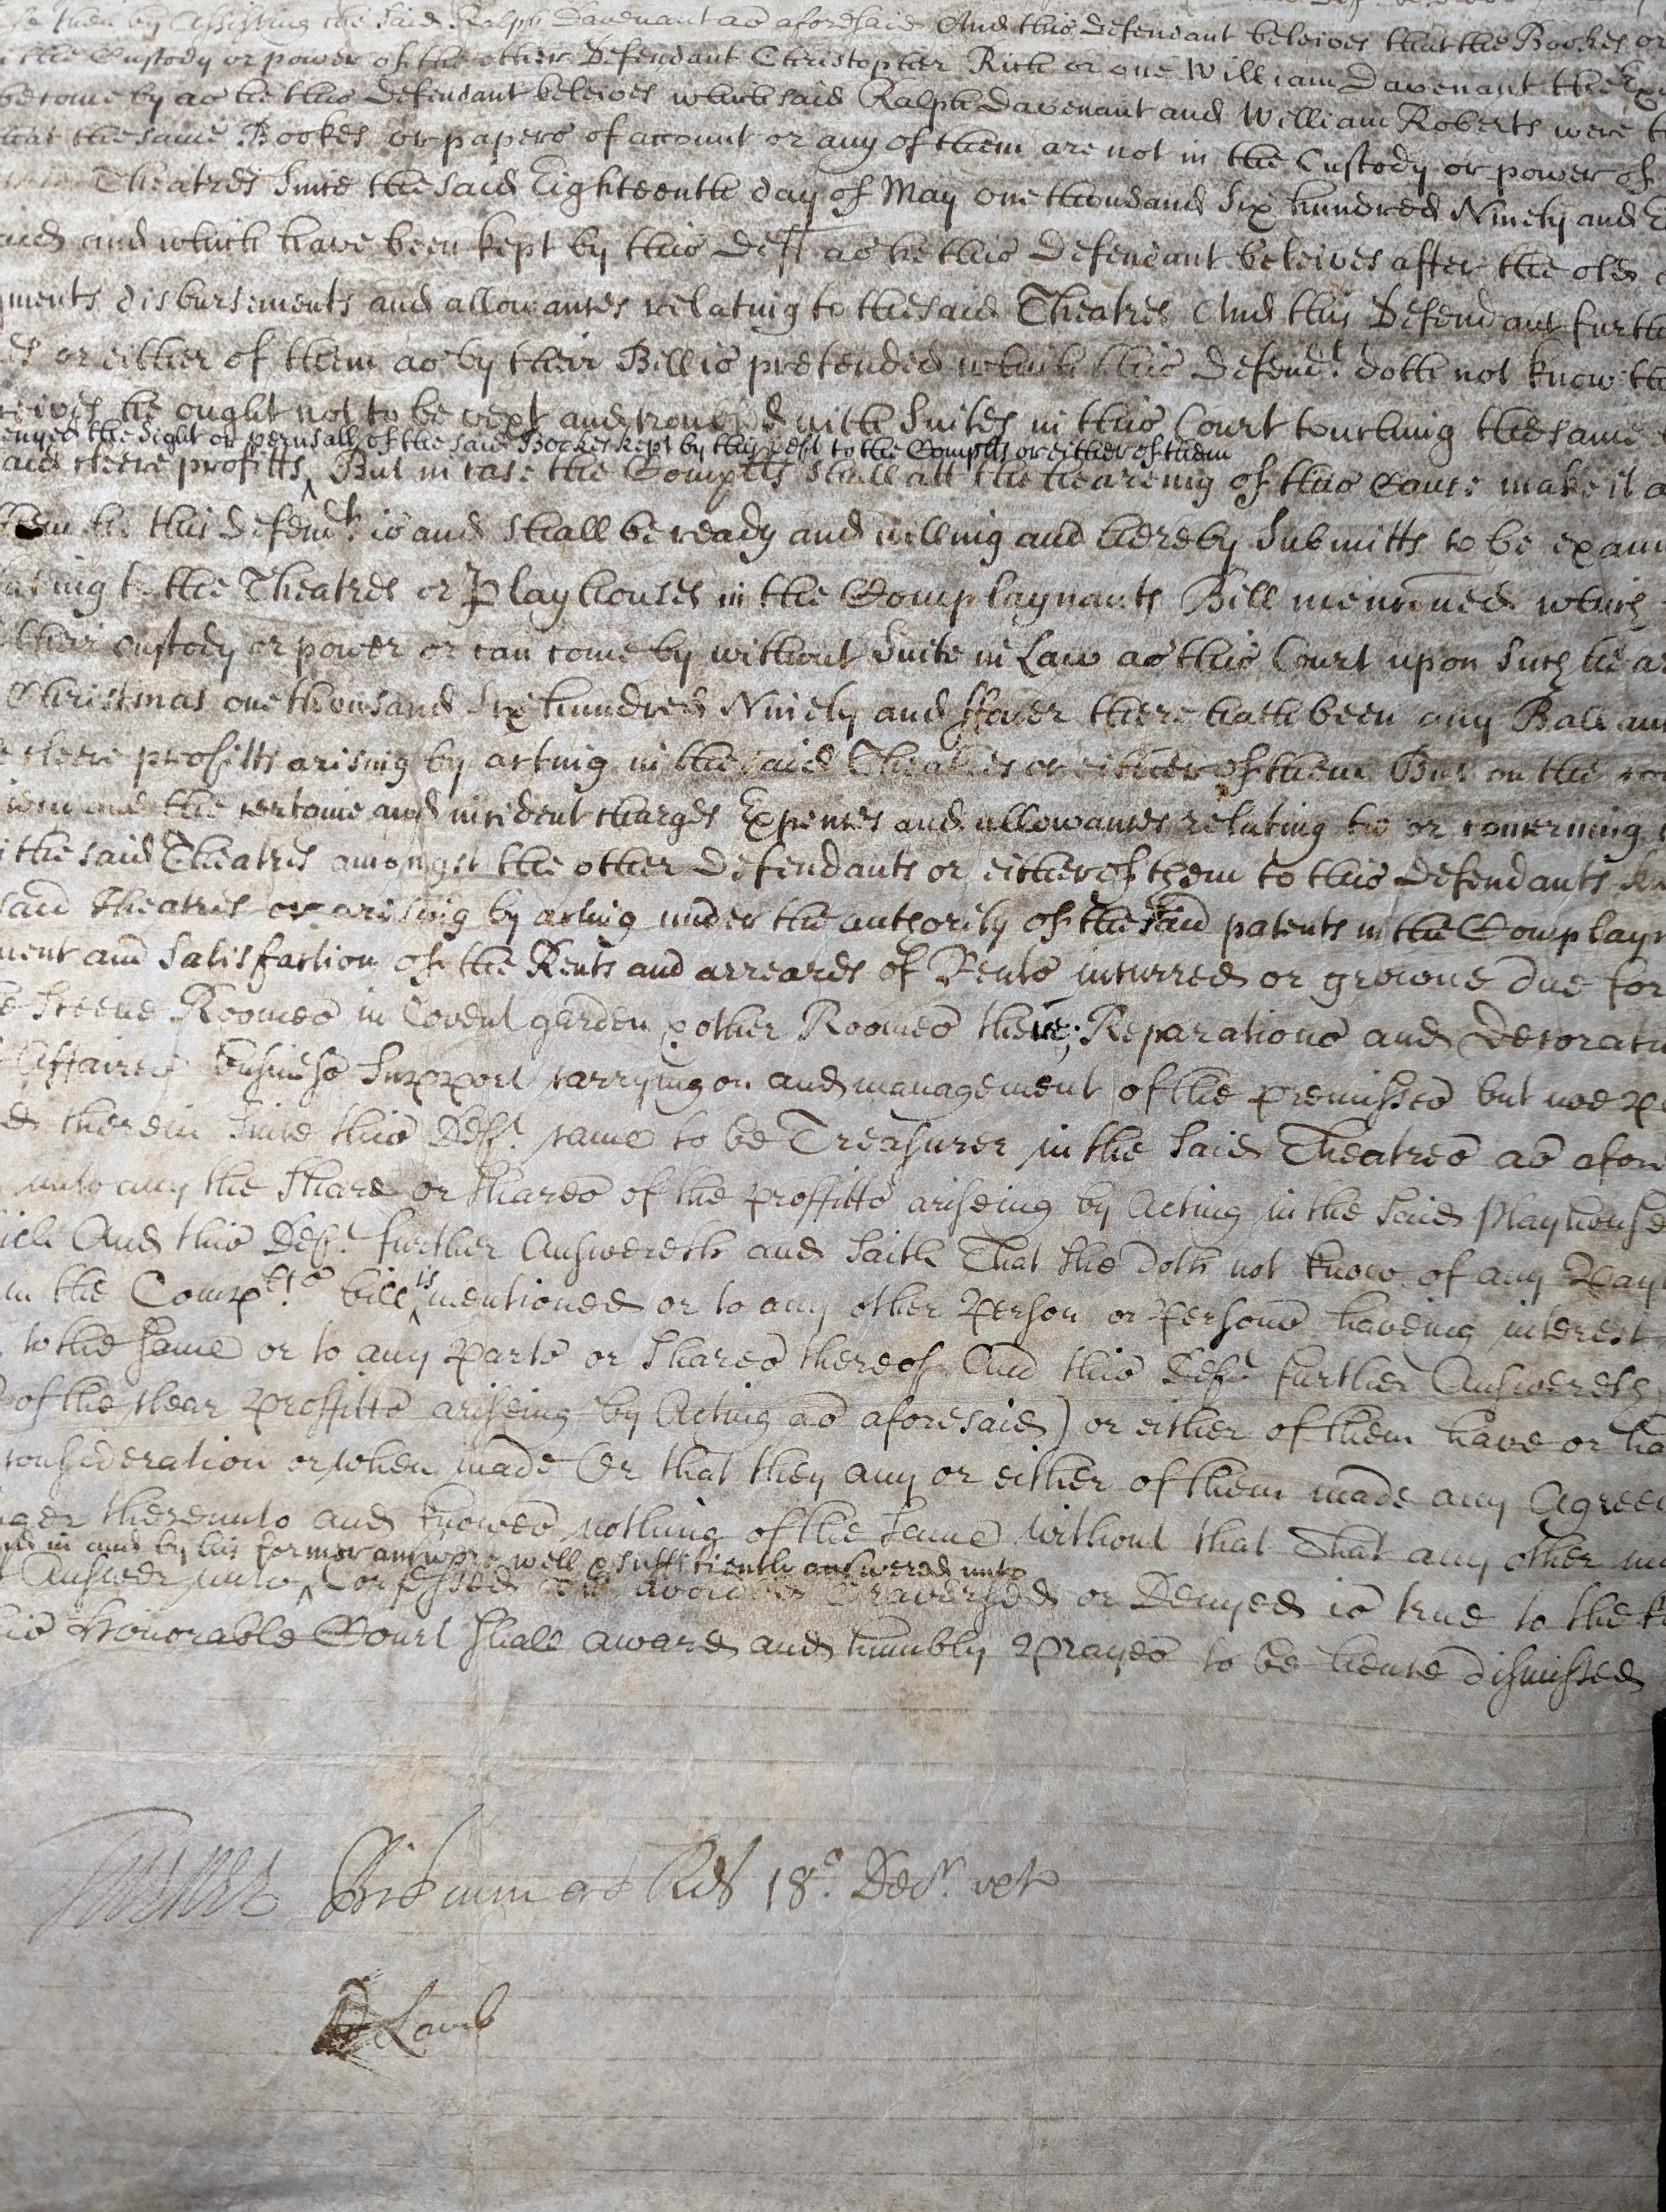 then by Assisting the said Ralph Davenant as aforesaid And this Defendant beleives that the Bookes or
the Custody or power of the other Defendant Christopher Rich or one William Davenant the
come by as he this Defendant beleives which said Ralph Davenant and William Roberts were
that the same Bookes or papers of account or any of them are not in the Custody or power of
Theatres since the said Eighteenth day of May one thousand six hundred Ninety and
and which have been kept by this Deft as he this Defendant beleives after the old
ments disbursements and allowances relating to the said Theatres And this Defendant furth
or either of them as by their Bill is pretended which this Defendt. doth not know
he ought not to be vext and troubled with Suites in this Court touching the same
enyed the sight or perusall of the said Bookes kept by this Deft to the Complts or either of them
cleere profitts But in case the Complts shall att the heareing of this Cause make it
this Defendt. is and shall be ready and willing and hereby Submitts to be exam
ating to the Theatres or Playhouses in the Complaynants Bill mencioned which
their custody or power or can come by without Suite in Law as this Court upon such
Christmas one thousand six hundred Ninety and ffower there hath been any Ballan
cleere profitts arising by acting in the said Theatres or either of them But on the con
and the certaine and incident charges Expences and allowances relating to or concerning
the said Theatres amongst the other Defendants or either of them to this Defendants
said Theatres or arising by acting under the authority of the said patents in the Complayn
ment and Satisfaction of the Rents and arreares of Rents incurred or growne due for
Sceene Roomes in Covent garden & other Roomes there; Reparations and Decorati
Affaires business Support carrying on and management of the premisses but noe
therein since this Deft. came to be Treasurer in the said Theatres as afore
unto any the share or shares of the proffitts ariseing by Acting in the said Playhouse
And this Deft. further Answereth and saith That she doth not know of any Pay
in the Complts. bill is mentioned or to any other Person or Persons haveing interest
to the same or to any Parts or shares thereof And this Deft. further Answereth
of the clear Proffitts ariseing by Acting as aforesaid) or either of them have or ha
consideration or when made Or that they any or either of them made any Agree
thereunto and knowes nothing of the same without that That any other
in and by his former answere well & sufficiently answered unto
Answer unto Confessed avoided Traversed or Denyed is true to the
Honorable Court shall award and humbly Prayes to be hence dismissed
18°. Decr.
Lamb